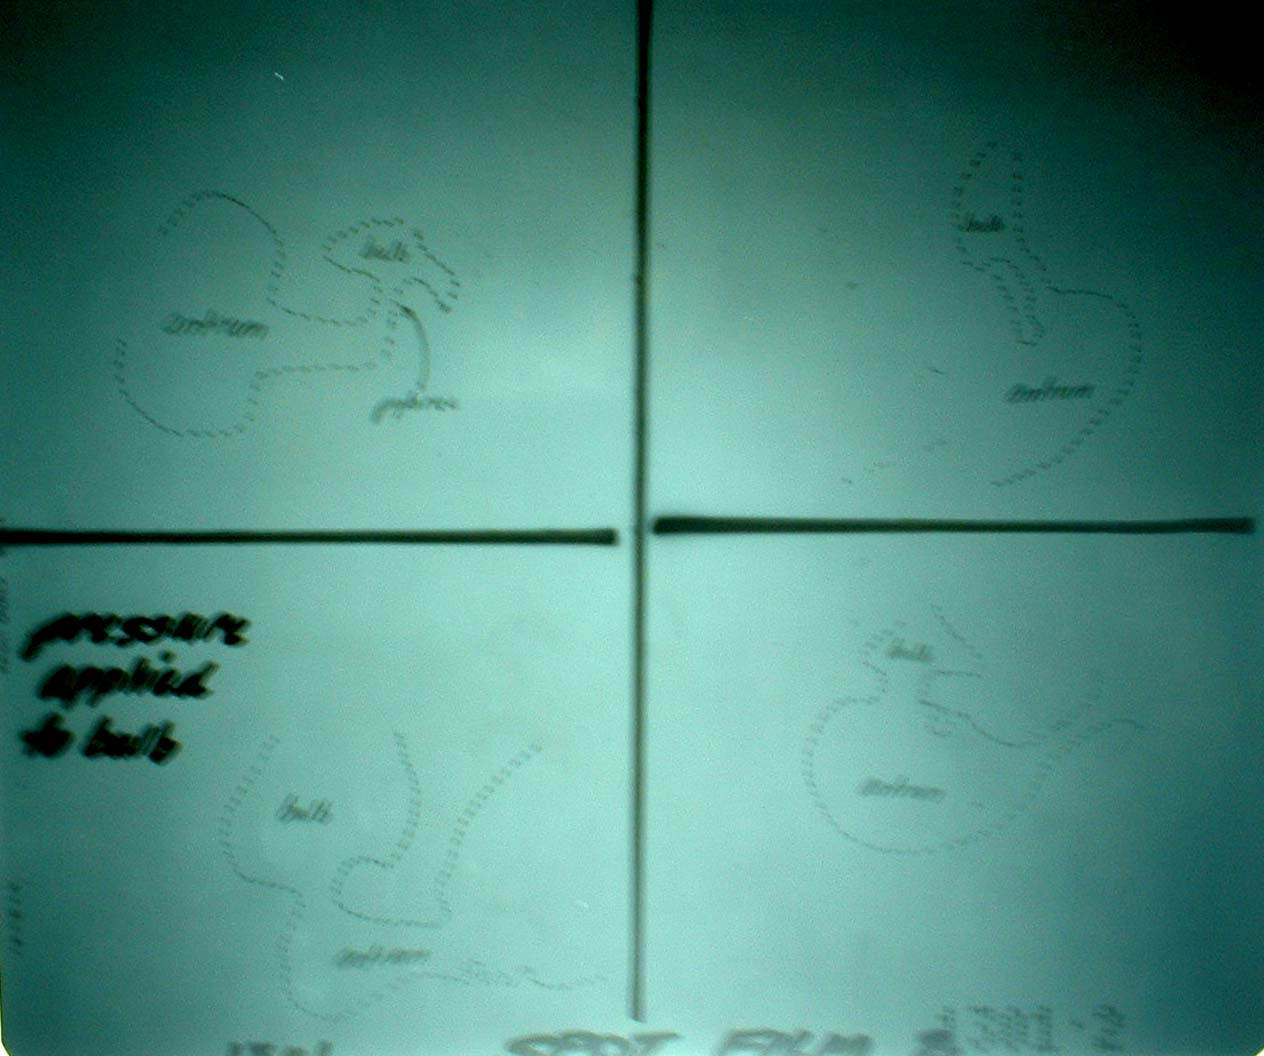 bulb
antrum
pylorus
bulb
antrum
pressure
applied
to bulb
bulb
antrum
bulb
antrum
SPOT FILM